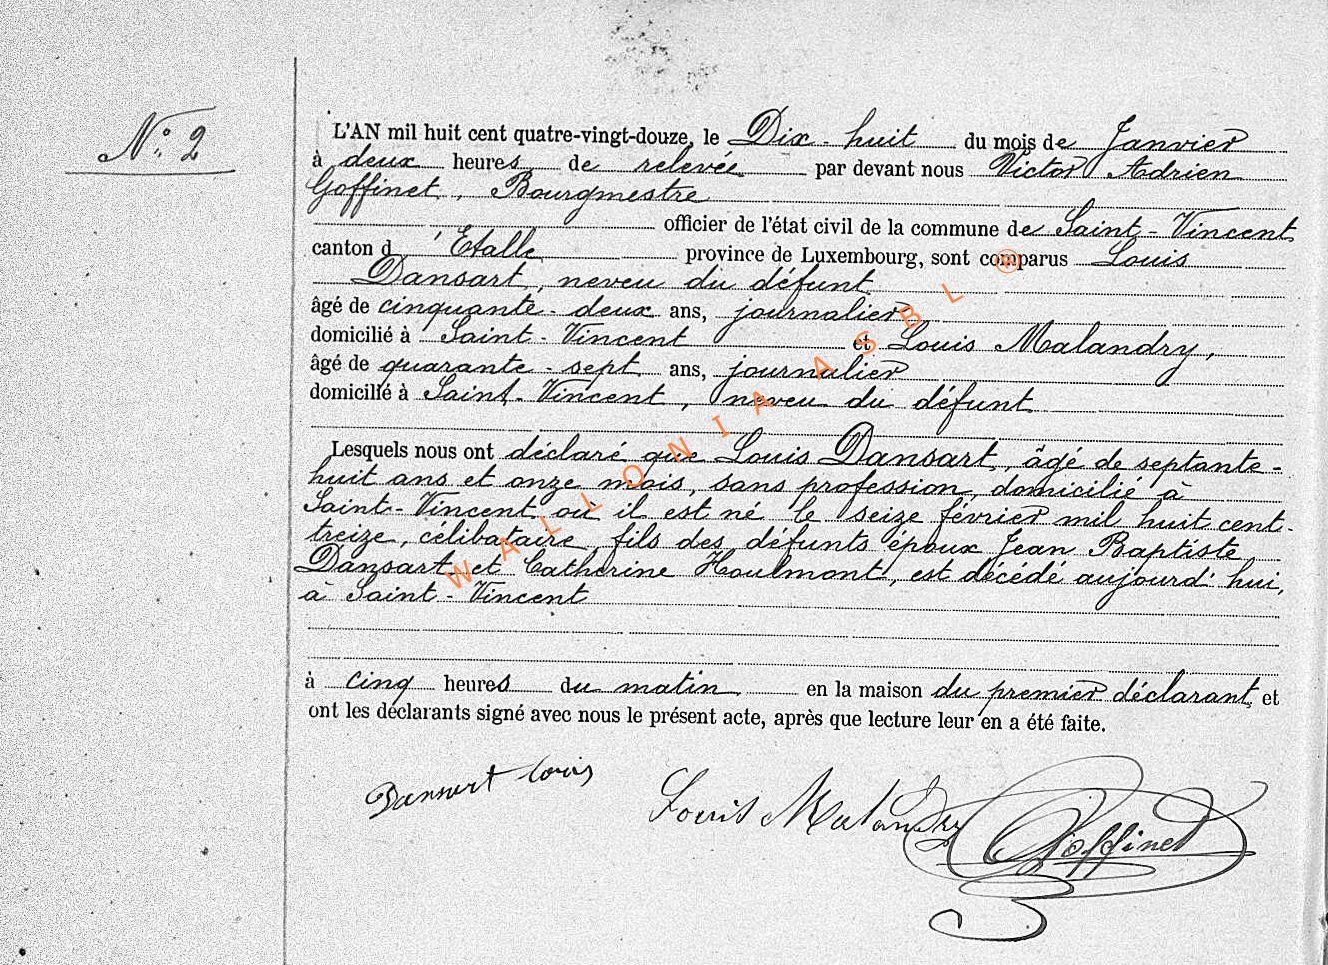 N° 2
L'AN mil huit cent quatre-vingt-douze, le Dix-huit du mois de Janvier
à deux heures de relevée par devant nous Victor Adrien
Goffinet, Bourgmestre
officier de l'état civil de la commune de Saint-Vincent
canton d'Etalle province de Luxembourg, sont comparus Louis
Dansart, neveu du défunt
âgé de cinquante-deux ans, journalier
domicilié à Saint-Vincent et Louis Malandry,
âgé de quarante-sept ans, journalier
domicilié à Saint-Vincent, neveu du défunt
Lesquels nous ont déclaré que Louis Dansart, âgé de septante-
huit ans et onze mois, sans profession, domicilié à
Saint-Vincent où il est né le seize février mil huit cent-
treize, célibataire, fils des défunts époux Jean Baptiste
Dansart et Catherine Houlmont, est décédé aujourd'hui,
à Saint-Vincent
à cinq heures du matin en la maison du premier déclarant, et
ont les déclarants signé avec nous le présent acte, après que lecture leur en a été faite.
Dansart Louis
Louis Malandry
Goffinet
WALLONIA ASBL ®